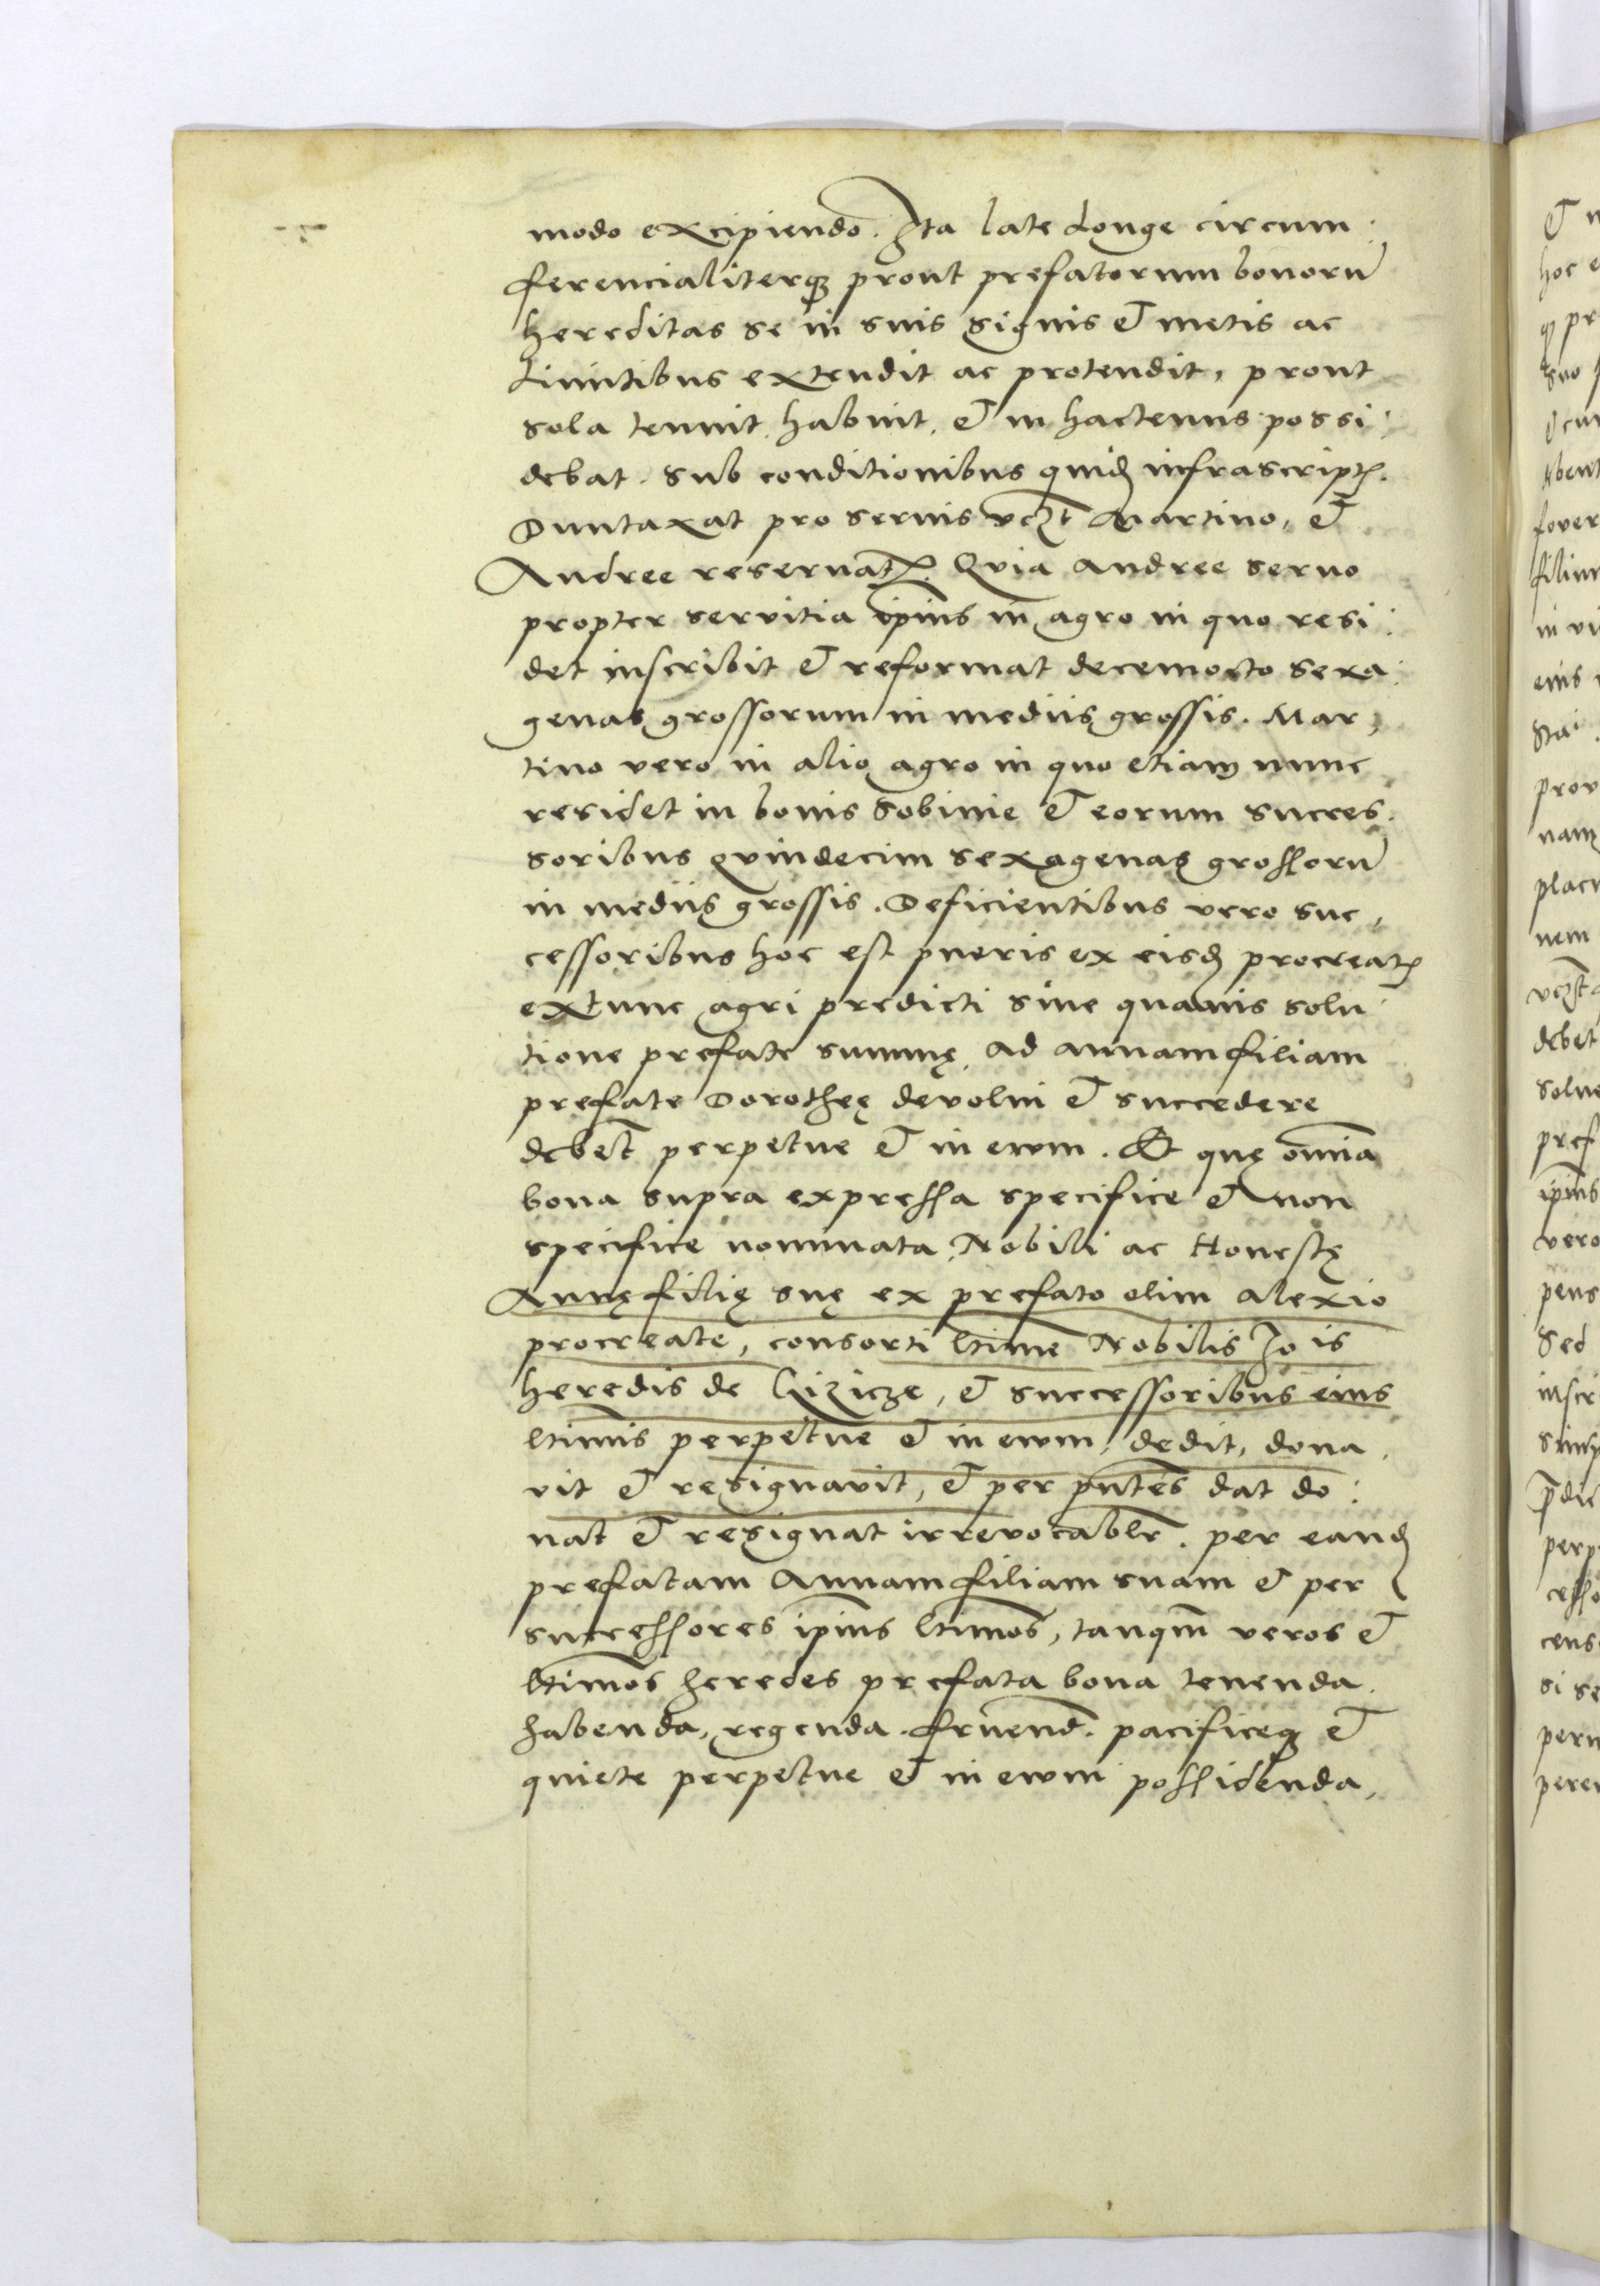 modo excipiendo. Ita late Longe circum:
ferencialiterqꝫ prout prefatorum bonorū
hereditas se in suis signis et metis ac
Limitibus extendit ac protendit, prout
sola tenuit habuit, et in hactenus possi:
debat. Sub conditionibus quidꝫ infrascriptꝭ.
Duntaxat pro servis vcꝫt Martino, et
Andree reservatꝭ. Qvia Andree servo
propter servitia ip̄ius in agro in quo resi:
det inscribit et reformat decemocto sexa:
genas grossorum in mediis grossis. Mar,
tino vero in alio agro in quo etiam nunc
residet in bonis Sobinie et eorum succes:
soribus qvindecim sexagenas grossorū
in mediis grossis. Deficientibus vero suc,
cessoribus hoc est pueris ex eisdꝫ procreatꝭ
extunc agri predicti sine quavis solu:
tione prefate summę ad annam filiam
prefate Dorotheę devolvi et succedere
debēt perpetue et in ewm. Et quę om̄ia
bona supra expressa specifice et non
specifice nominata Nobili ac Honestę
Annę filię suę ex prefato olim Alexio
procreate, consorti l̄time Nobilis Jo is
heredis de Cizicze, et successoribus eius
l̄timis perpetue et in ewm, dedit, dona,
vit et resignavit, et per pn̄tes dat do:
nat et resignat irrevocabl̄r. per eandꝫ
prefatam Annam filiam suam et per
successores ip̄ius l̄timos, tanqm̄ veros et
l̄timos heredes prefata bona tenenda.
habenda, regenda. fruend. pacificeqꝫ et
quiete perpetue et in ewm possidenda,